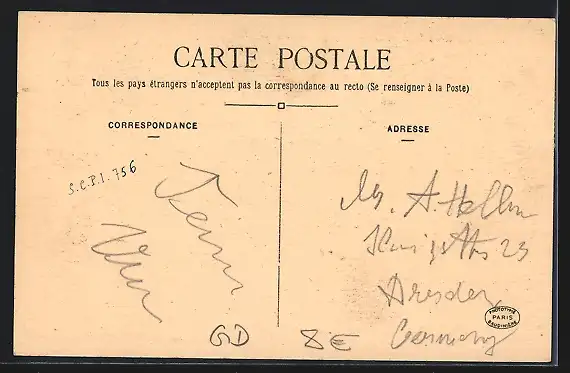 CARTE POSTALE
Tous les pays étrangers n'acceptent pas la correspondance au recto (Se renseigner à la Poste)
CORRESPONDANCE
ADRESSE
S.C.P.I. 756
A.
23
Dresden
Germany
GD
8€
PHOTOTYPIE
PARIS
BAUDINIÈRE